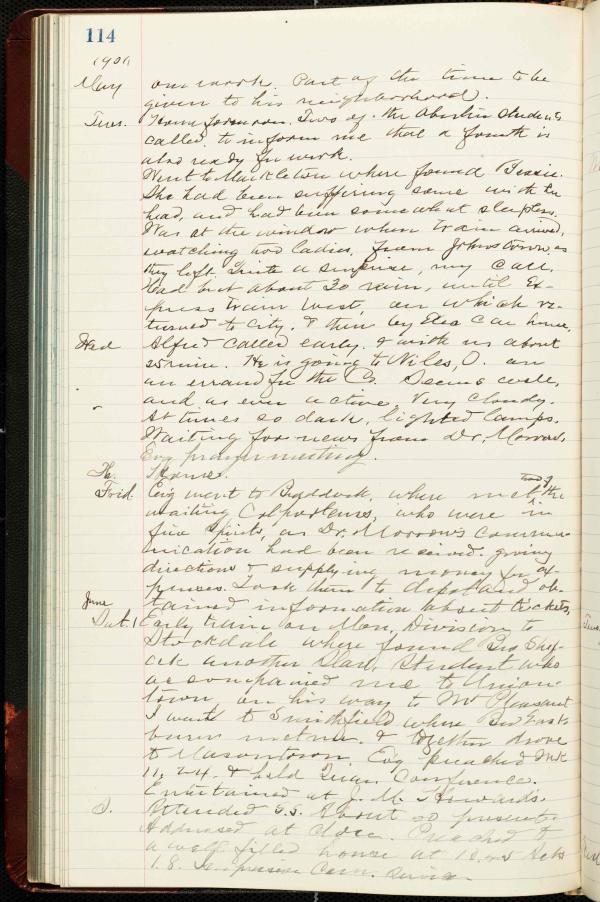 114
1901
May our work. Part of the time to be
given to his neighborhood).
Tues. Home forenoon. Two of the Oberlin students
called to inform me that a fourth is
also ready for work.
Went to where found Bessie.
She had been suffering some with her
head, and had been somewhat sleepless.
Was at the window when train arrived,
watching two ladies, from Johnstown, as
they left. Quite a surprise, my call.
Had but about 30 min, until Ex-
press train West, on which re-
turned to city, & then by Elec Car home.
Wed Alfred called early & with us about
25 min. He is going to Niles, O. on
an errand for the Co. Seems well,
and as ever active. Very cloudy.
At times so dark, lighted lamps.
Waiting for news from Dr. Morrow.
Ev'g prayer meeting.
Th. Home.
Frid. Ev'g went to Braddock, where met two of the
waiting Colporteurs, who were in
fine spirits, as Dr. Morrow's commu-
nication had been received, giving
directions & supplying money for ex-
penses. Took them to depot and ob-
tained information about tickets,
June
Sat. 1 Early train on Mon. Division to
Stockdale where found Bro
another Slav. Student who
accompanied me to Union-
town, on his way to Mt Pleasant
I went to Smithfield where Bro
met me. & together drove
to Masontown. Ev'g preached Mk
11, 24. & held Quar. Conference.
Entertained at J. M. Howard's.
S. Attended S.S. About 50 present.
Addressed at close. Preached to
a well filled house at 10.45 Acts
1.8. Impressive Com. service.